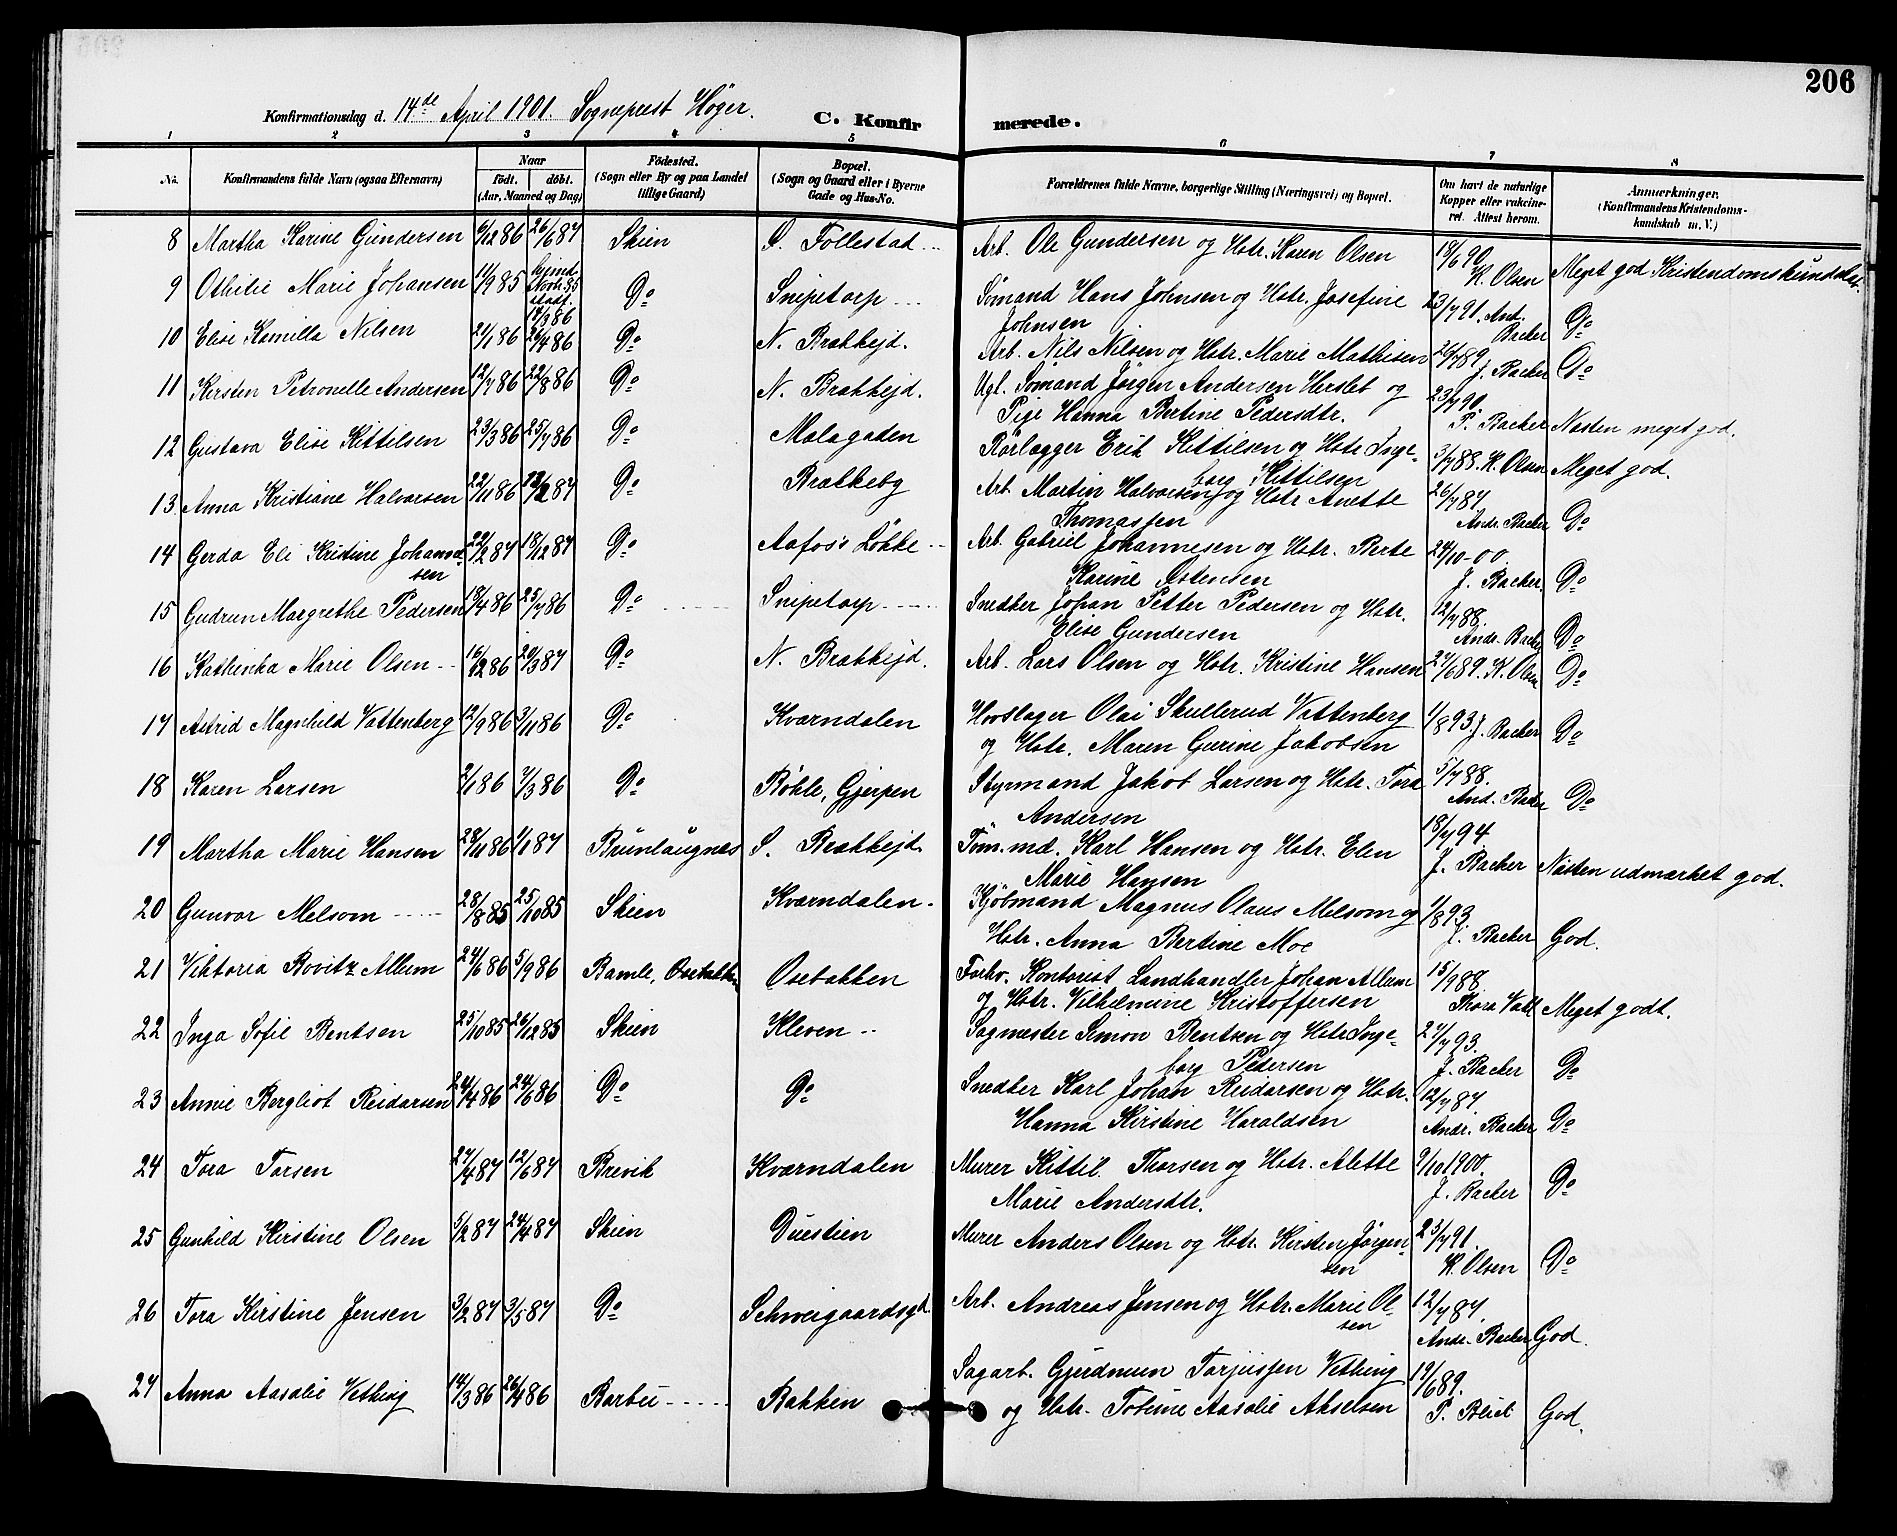 206
Konfirmationsdag d. 14de April 1901. Sogneprest Höyer.
C. Konfirmerede.
1 2 3 4 5 6 7 8
No. Konfirmandens fulde Navn (ogsaa Efternavn) Naar födt. döbt. (Aar, Maaned og Dag) Födested. (Sogn eller By og paa Landet tillige Gaard) Bopæl. (Sogn og Gaard eller i Byerne Gade og Hus-No. Forældrenes fulde Navne, borgerlige Stilling (Næringsvei) og Bopæl. Om havt de naturlige Kopper eller vakcineret. Attest herom. Anmærkninger. (Konfirmandens Kristendomskundskab m. V.)
8 Martha Karine Gundersen 6/12 86 26/6 87 Skien S. Follestad Arb. Ole Gundersen og Hstr. Karen Olsen 19/6 90. K. Olsen Meget god Kristendomskundskab.
9 Othilie Marie Johansen 11/9 85 hjmd. stadf. 14/3 86 Do Snipetorp Sömand Hans Johnsen og Hstr. Josefine Johnsen 23/7 91. And. Backer Do
10 Elise Kamilla Nilsen 21/1 86 26/4 86 Do N. Brækkejd. Arb. Nils Nilsen og Hstr. Marie Mathisen 26/7 89 J. Backer Do
11 Kirsten Petronelle Andersen 12/7 86 22/8 86 Do N. Brækkejd. Ugf. Sömand Jörgen Andersen Herslet og Pige Hanna Bertine Pedersdtr. 23/7 90. P. Backer Næsten meget god.
12 Gustava Elise Kittilsen 23/3 86 25/7 86 Do Malagaden Rörlægger Erik Kittilsen og Hstr Ingeborg Kittilsen 3/7 88. K. Olsen Meget god.
13 Anna Kristiane Halvorsen 22/11 86 2 87 Do Brækkeby Arb. Martin Halvorsen og Hstr Anette Thomassen 26/7 87. Andr. Backer Do
14 Gerda Eli Kristine Johannesen 22/2 87 18/12 87 Do Aafos's Lökke Arb. Gabriel Johannesen og Hstr. Berte Karine Ostensen 24/10-00. J. Backer. Do
15 Gudrun Margrethe Pedersen 18/4 86 25/7 86 Do Snipetorp Snedker Johan Petter Pedersen og Hstr. Elise Gundersen 12/7 88. Andr. Backer Do
16 Kathinka Marie Olsen 16/12 86 20/3 87 Do N. Brækkejd. Arb. Lars Olsen og Hstr. Kristine Hansen 27/6 89. K. Olsen Do
17 Astrid Magnhild Vattenberg 12/9 86 3/11 86 Do Kværndalen Hovslager Olai Skullerud Vattenberg og Hstr. Maren Gurine Jakobsen 1/8 93 J. Backer Do
18 Karen Larsen 2/1 86 7/3 86 Do Böhle, Gjerpen Styrmand Jakob Larsen og Hstr. Tora Andersen 5/7 88. And. Backer Do
19 Martha Marie Hansen 28/11 86 1/1 87 Brunlaugnes S. Brækkejd. Töm.md. Karl Hansen og Hstr. Elen Marie Hansen 18/7 94 J. Backer Næsten udmærket god.
20 Gunvor Melsom 28/8 85 25/10 85 Skien Kværndalen Kjöbmand Magnus Olaus Melsom og Hstr. Anna Bertine Moe 1/8 93 J. Backer God.
21 Viktoria Rovitz Allum 24/6 86 5/9 86 Bamle, Osebakken Osebakken Forhv. Kontorist, Landhandler Johan Allum og Hstr. Vilhelmine Kristoffersen 15/9 88. Thora Vatl Meget godt.
22 Inga Sofie Bentsen 25/10 85 26/12 85 Skien Kleven Sagmester Simon Bentsen og Hstr Ingeborg Pedersen 27/7 93. J. Backer Do
23 Annie Bergliot Reidarsen 24/4 86 24/6 86 Do Do Snedker Karl Johan Reidarsen og Hstr. Hanna Kirstine Haraldsen 12/7 87. Andr. Backer Do
24 Tora Torsen 27/4 87 12/6 87 Brevik Kværndalen Murer Kittil Thorsen og Hstr. Alette Marie Andersdtr. 9/10 1900. J. Backer Do
25 Gunhild Kirstine Olsen 5/2 87 24/4 87 Skien Duestien Murer Anders Olsen og Hstr. Kirsten Jörgensen 23/7 91. K. Olsen Do
26 Tora Kirstine Jensen 3/2 87 3/5 87 Do Schweigaardsgd. Arb. Andreas Jensen og Hstr. Marie Olsen 12/7 87. Andr. Backer God.
27 Anna Aasalie Vetling 14/3 86 26/4 86 Barbu Bakken Sagarb. Gjerdmun Torjussen Vetling og Hstr. Tobine Aasalie Akselsen 19/6 89. P. Blié God.